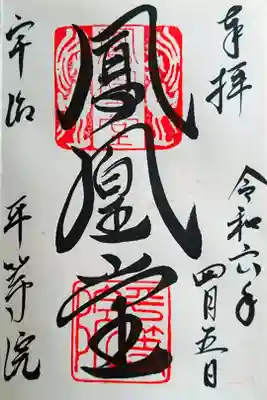 奉拝
令和六年
四月五日
鳳凰堂
宇治 平等院